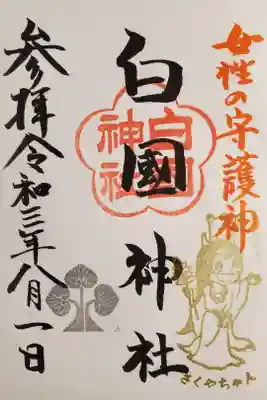 女性の守護神
白國神社
白国
神社
参拝令和三年八月一日
さくやちゃん